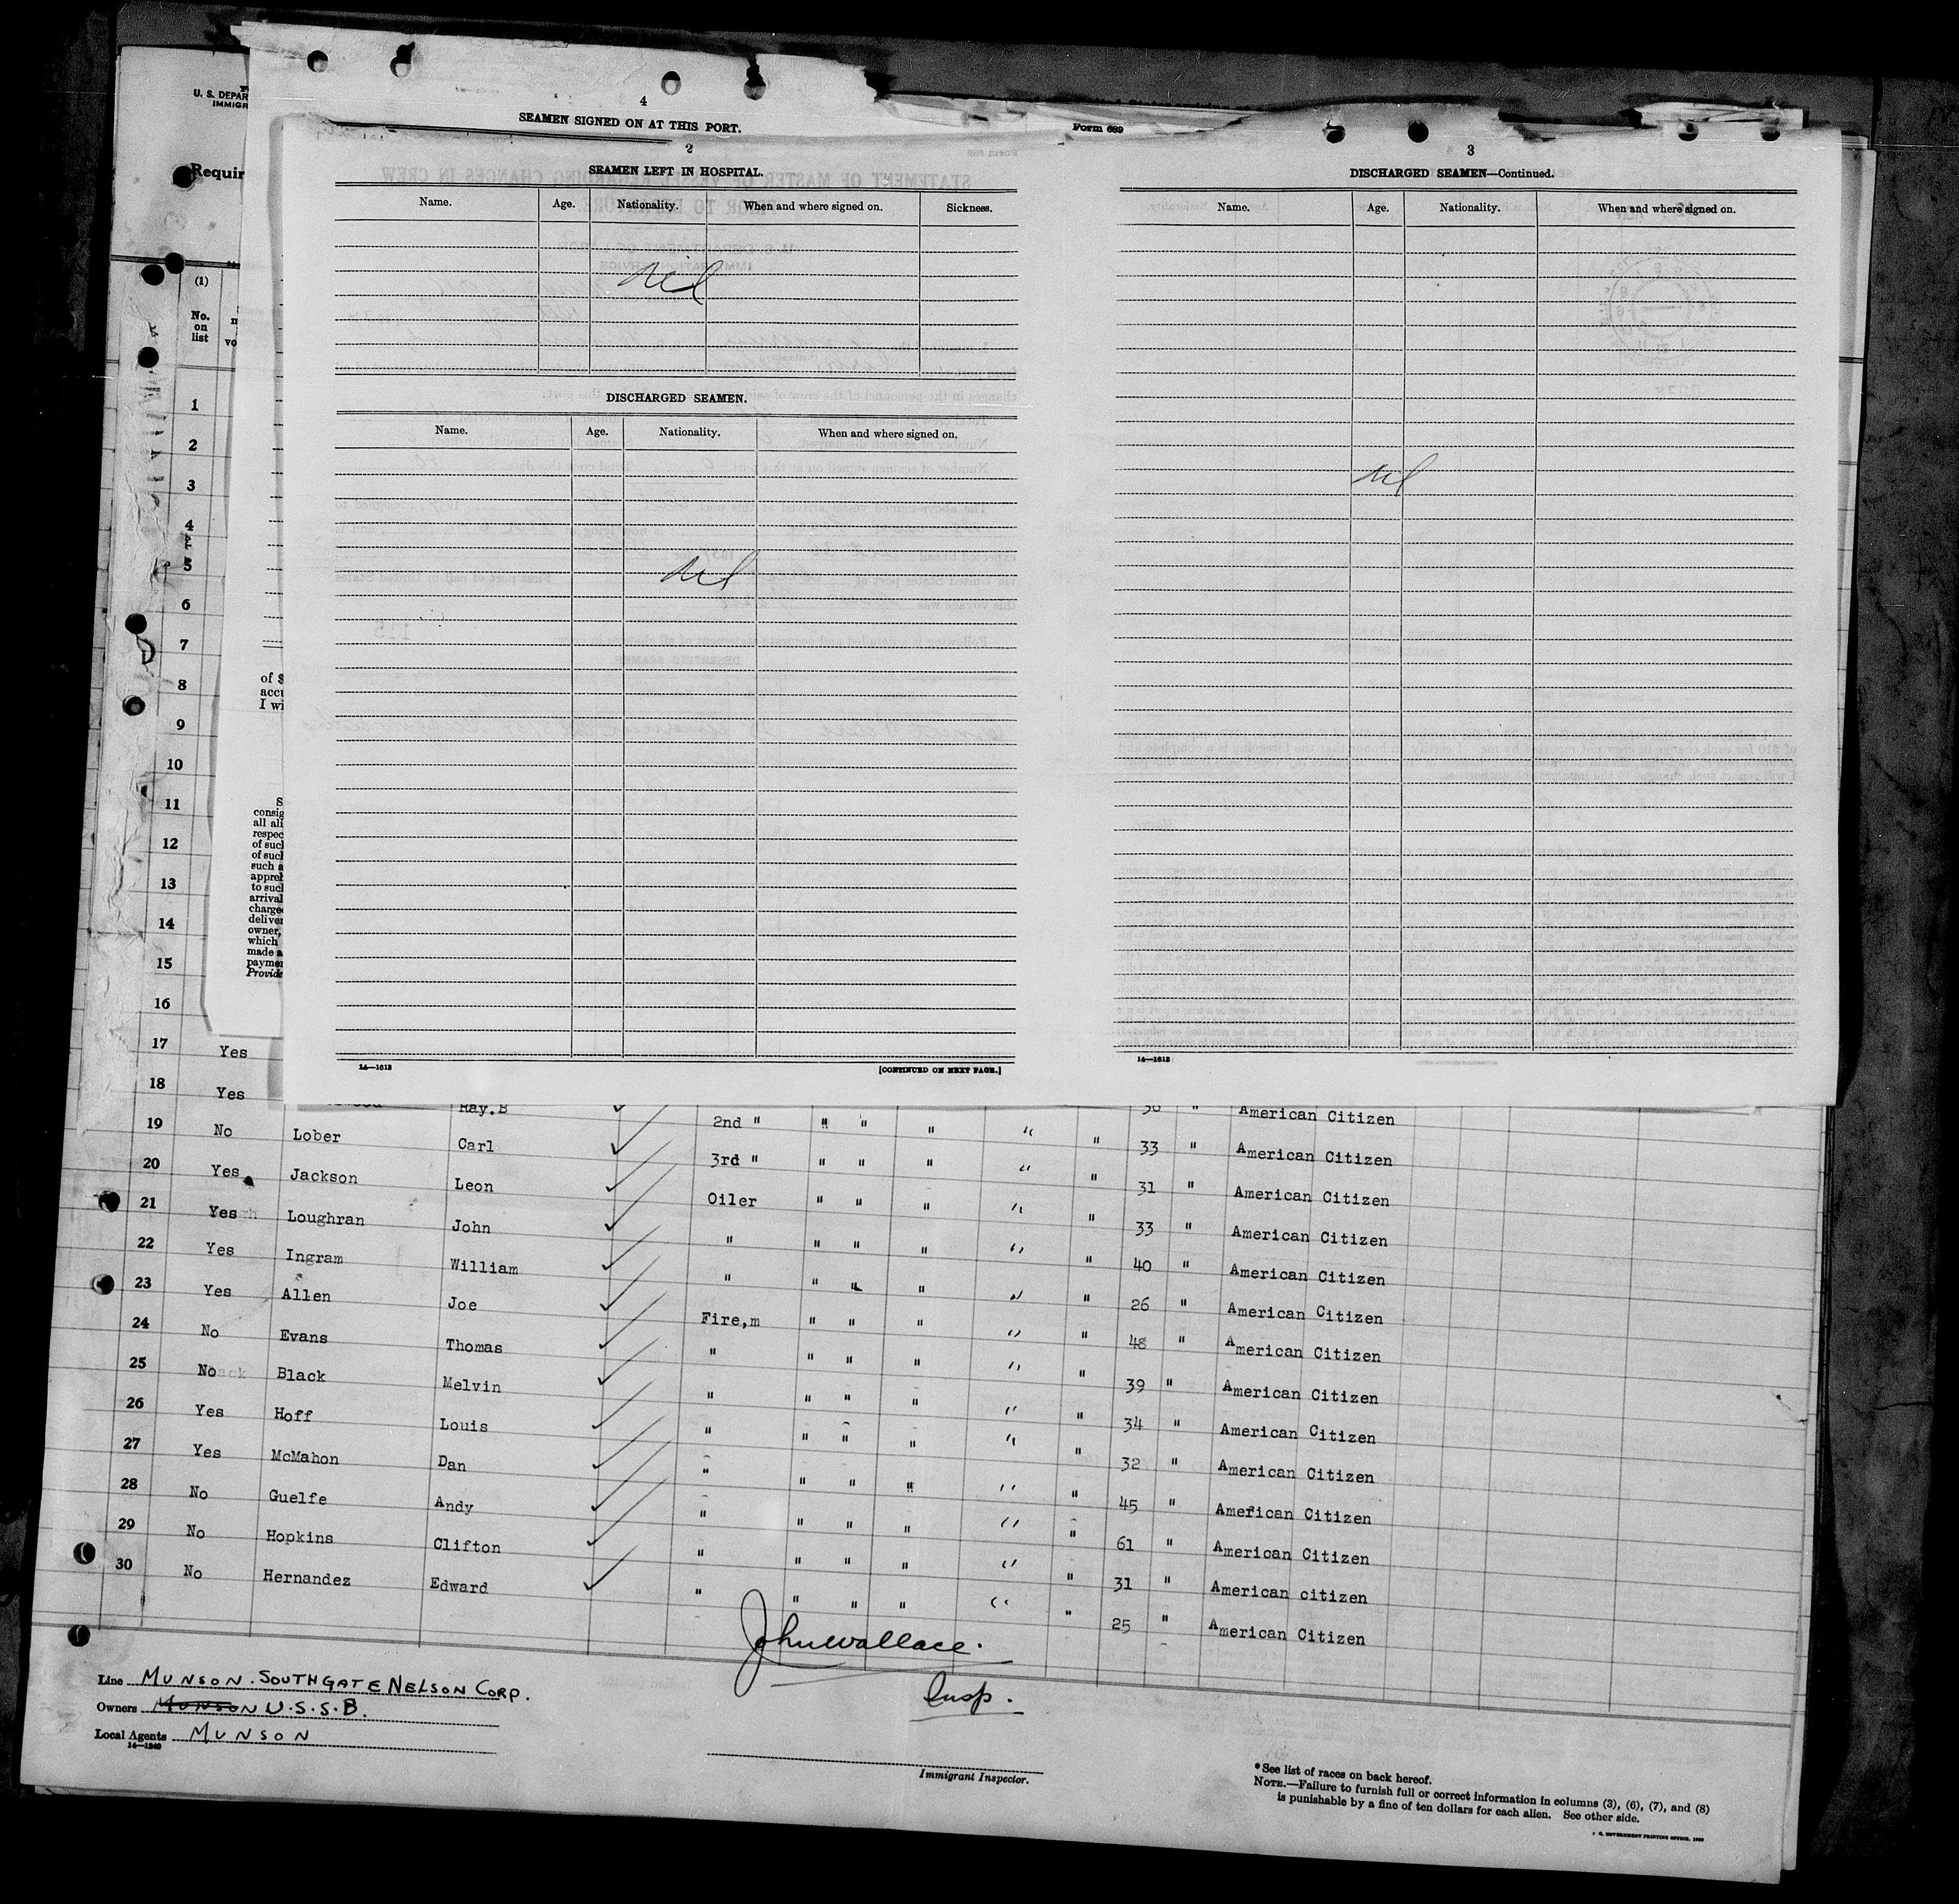 U. S. DEPAR
IMMIGR
Requir
4
SEAMEN SIGNED ON AT THIS PORT.
Form 689
2
SEAMEN LEFT IN HOSPITAL.
Name. Age. Nationality. When and where signed on. Sickness.
Nil
DISCHARGED SEAMEN.
Name. Age. Nationality. When and where signed on.
Nil
14—1613 [CONTINUED ON NEXT PAGE.]
3
DISCHARGED SEAMEN—Continued.
Name. Age. Nationality. When and where signed on.
Nil
14—1613
(1)
No.
on
list
1
2
3
4
5
6
7
8
9
10
11
12
13
14
15
16
of $
accu
I wi
S
consig
all ali
respec
of sucl
of sucl
such a
appreh
to sucl
arrival
charge
deliver
owner,
which
made a
paymen
Provide
17 Yes American Citizen
18 Yes Ray.B 2nd " " " " " " 33 " American Citizen
19 No Lober Carl 3rd " " " " " " 31 " American Citizen
20 Yes Jackson Leon Oiler " " " " " 33 " American Citizen
21 Yes Loughran John " " " " " " 40 " American Citizen
22 Yes Ingram William " " " " " " 26 " American Citizen
23 Yes Allen Joe Fire,m " " " " " 48 " American Citizen
24 No Evans Thomas " " " " " " 39 " American Citizen
25 No Black Melvin " " " " " " 34 " American Citizen
26 Yes Hoff Louis " " " " " " 32 " American Citizen
27 Yes McMahon Dan " " " " " " 45 " American Citizen
28 No Guelfe Andy " " " " " " 61 " American Citizen
29 No Hopkins Clifton " " " " " " 31 " American citizen
30 No Hernandez Edward " " " " " " 25 " American Citizen
John Wallace.
Insp.
Line MUNSON. SOUTHGATE NELSON CORP.
Owners MUNSON U.S.S.B.
Local Agents MUNSON
14—1240
Immigrant Inspector.
* See list of races on back hereof.
NOTE.—Failure to furnish full or correct information in columns (3), (6), (7), and (8)
is punishable by a fine of ten dollars for each alien. See other side.